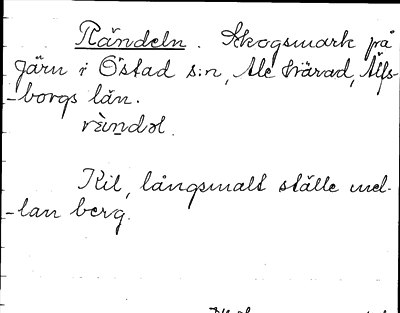 Rändeln. Skogsmark på
Järn i Östad s:n, Ale härad, Älfs-
-borgs län.
rä̀ndəl.
Kil, långsmalt ställe mel-
-lan berg.